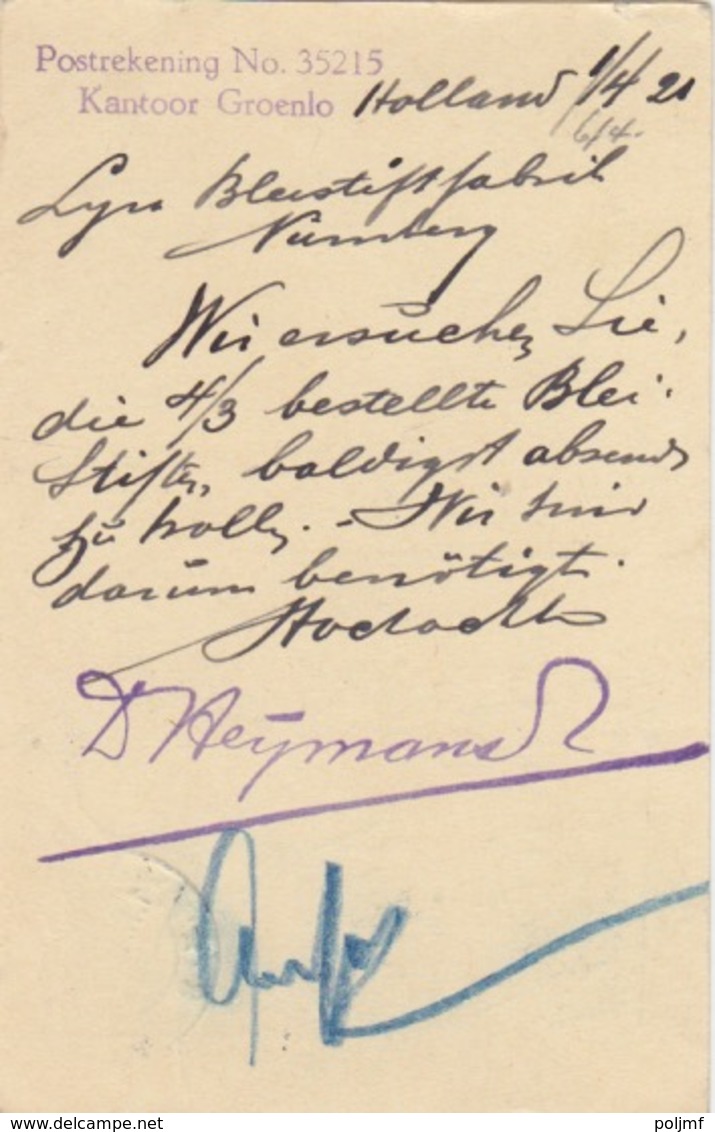 Postrekening No. 35215
Kantoor Groenlo
Holland 1/4 21
6/4.
Lyra Bleistiftfabrik
Nürnberg
Wir ersuchen Sie,
die 4/3 bestellte Blei-
Stiften, baldigst absend
zu wollen. - Wir sind
darum benötigt.
Hochacht
D Heymans
www.delcampe.net
poljmf